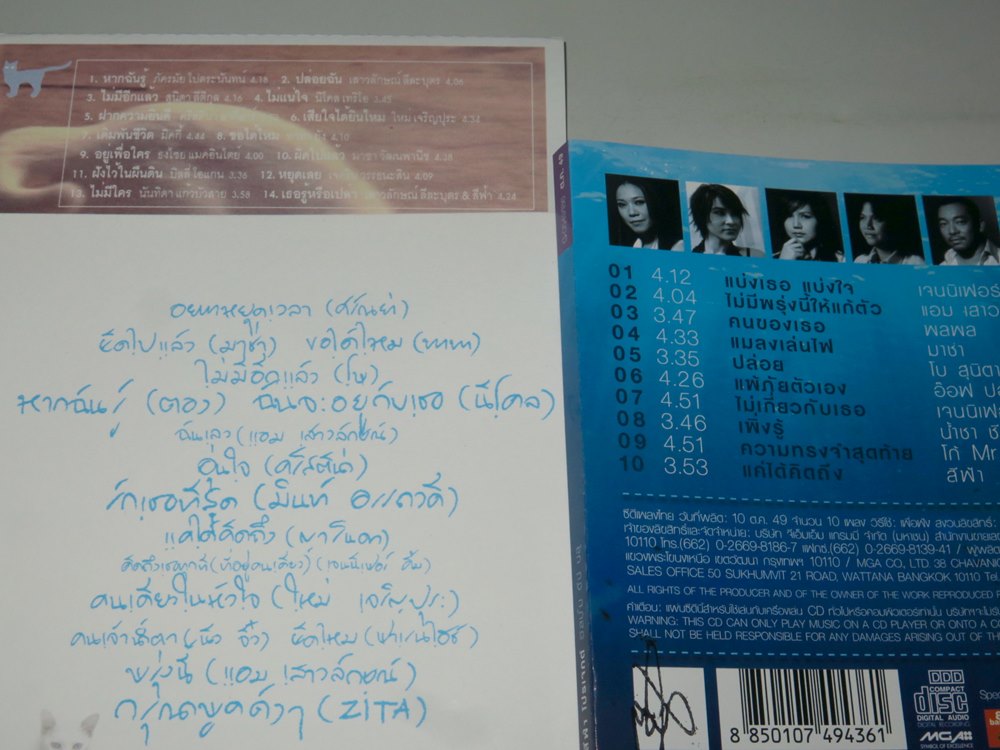 1. หากฉันรู้ ภัครมัย โปตระนันทน์ 4.18 2. ปล่อยฉัน เสาวลักษณ์ ลีละบุตร 4.06
3. ไม่มีอีกแล้ว สุนิตา ลีติกุล 4.16 4. ไม่แน่ใจ นิโคล เทริโอ 3.45
5. ฝากความยินดี 6. เสียใจได้ยินไหม ใหม่ เจริญปุระ 4.34
7. เดิมพันชีวิต มิคกี้ 4.44 8. ขอได้ไหม 4.10
9. อยู่เพื่อใคร ธงไชย แมคอินไตย์ 4.00 10. ผิดไปแล้ว มาช่า วัฒนพานิช 4.38
11. ฝังไว้ในผืนดิน บิลลี่ โอแกน 3.36 12. หยุดเลย 4.09
13. ไม่มีใคร นันทิดา แก้วบัวสาย 3.58 14. เธอรู้หรือเปล่า เสาวลักษณ์ ลีละบุตร & สีฟ้า 4.24
อยากหยุดเวลา (ศรัณย่า)
ผิดไปแล้ว (มาช่า) ขอได้ไหม (ทาทา)
ไม่มีอีกแล้ว (โบ)
หากฉันรู้ (ตอง) ฉันจะอยู่กับเธอ (นิโคล)
ฉันเลว (แอม เสาวลักษณ์)
อุ่นใจ (คริสติน่า)
รักเธอที่สุด (มิ้นท์ อรรถวดี)
แค่ได้คิดถึง (ญารินดา)
คิดถึงเธอทุกที (ที่อยู่คนเดียว) (เจนนิเฟอร์ คิ้ม)
คนเดียวในหัวใจ (ใหม่ เจริญปุระ)
คนเจ้าน้ำตา (นิว จิ๋ว) ผิดไหม (ฟาเรนไฮธ์)
พรุ่งนี้ (แอม เสาวลักษณ์)
กรุณาพูดดังๆ (ZITA)
01 4.12 แบ่งเธอ แบ่งใจ เจนนิเฟอร์
02 4.04 ไม่มีพรุ่งนี้ให้แก้ตัว แอม เสาว
03 3.47 คนของเธอ พลพล
04 4.33 แมลงเล่นไฟ มาช่า
05 3.35 ปล่อย โบ สุนิตา
06 4.26 แพ้ภัยตัวเอง อ๊อฟ ปอ
07 4.51 ไม่เกี่ยวกับเธอ เจนนิเฟอ
08 3.46 เพิ่งรู้ น้ำชา ชี
09 4.51 ความทรงจำสุดท้าย โก้ Mr
10 3.53 แค่ได้คิดถึง สีฟ้า
ซีดีเพลงไทย วันที่ผลิต: 10 ต.ค. 49 จำนวน 10 เพลง วิธีใช้: เพื่อฟัง สงวนลิขสิทธิ์:
เจ้าของลิขสิทธิ์และจัดจำหน่าย: บริษัท จีเอ็มเอ็ม แกรมมี่ จำกัด (มหาชน) สำนักงานขายเลข
10110 โทร.(662) 0-2669-8186-7 แฟกซ์.(662) 0-2669-8139-41 / ผู้ผลิต
แขวงพระโขนงเหนือ เขตวัฒนา กรุงเทพฯ 10110 / MGA CO., LTD. 38 CHAVANIC
SALES OFFICE 50 SUKHUMVIT 21 ROAD, WATTANA BANGKOK 10110 Tel.
ALL RIGHTS OF THE PRODUCER AND OF THE OWNER OF THE WORK REPRODUCED R
คำเตือน: แผ่นซีดีนี้สำหรับใช้เล่นกับเครื่องเล่น CD ทั่วไปหรือคอมพิวเตอร์เท่านั้น บริษัทฯจะไม่รับ
WARNING: THIS CD CAN ONLY PLAY MUSIC ON A CD PLAYER OR ONTO A C
SHALL NOT BE HELD RESPONSIBLE FOR ANY DAMAGES ARISING OUT OF TH
8 850107 494361
DDD
COMPACT
disc
DIGITAL AUDIO
DIGITAL RECORDING
MGA
SYMBOL OF EXCELLENCE
Spec